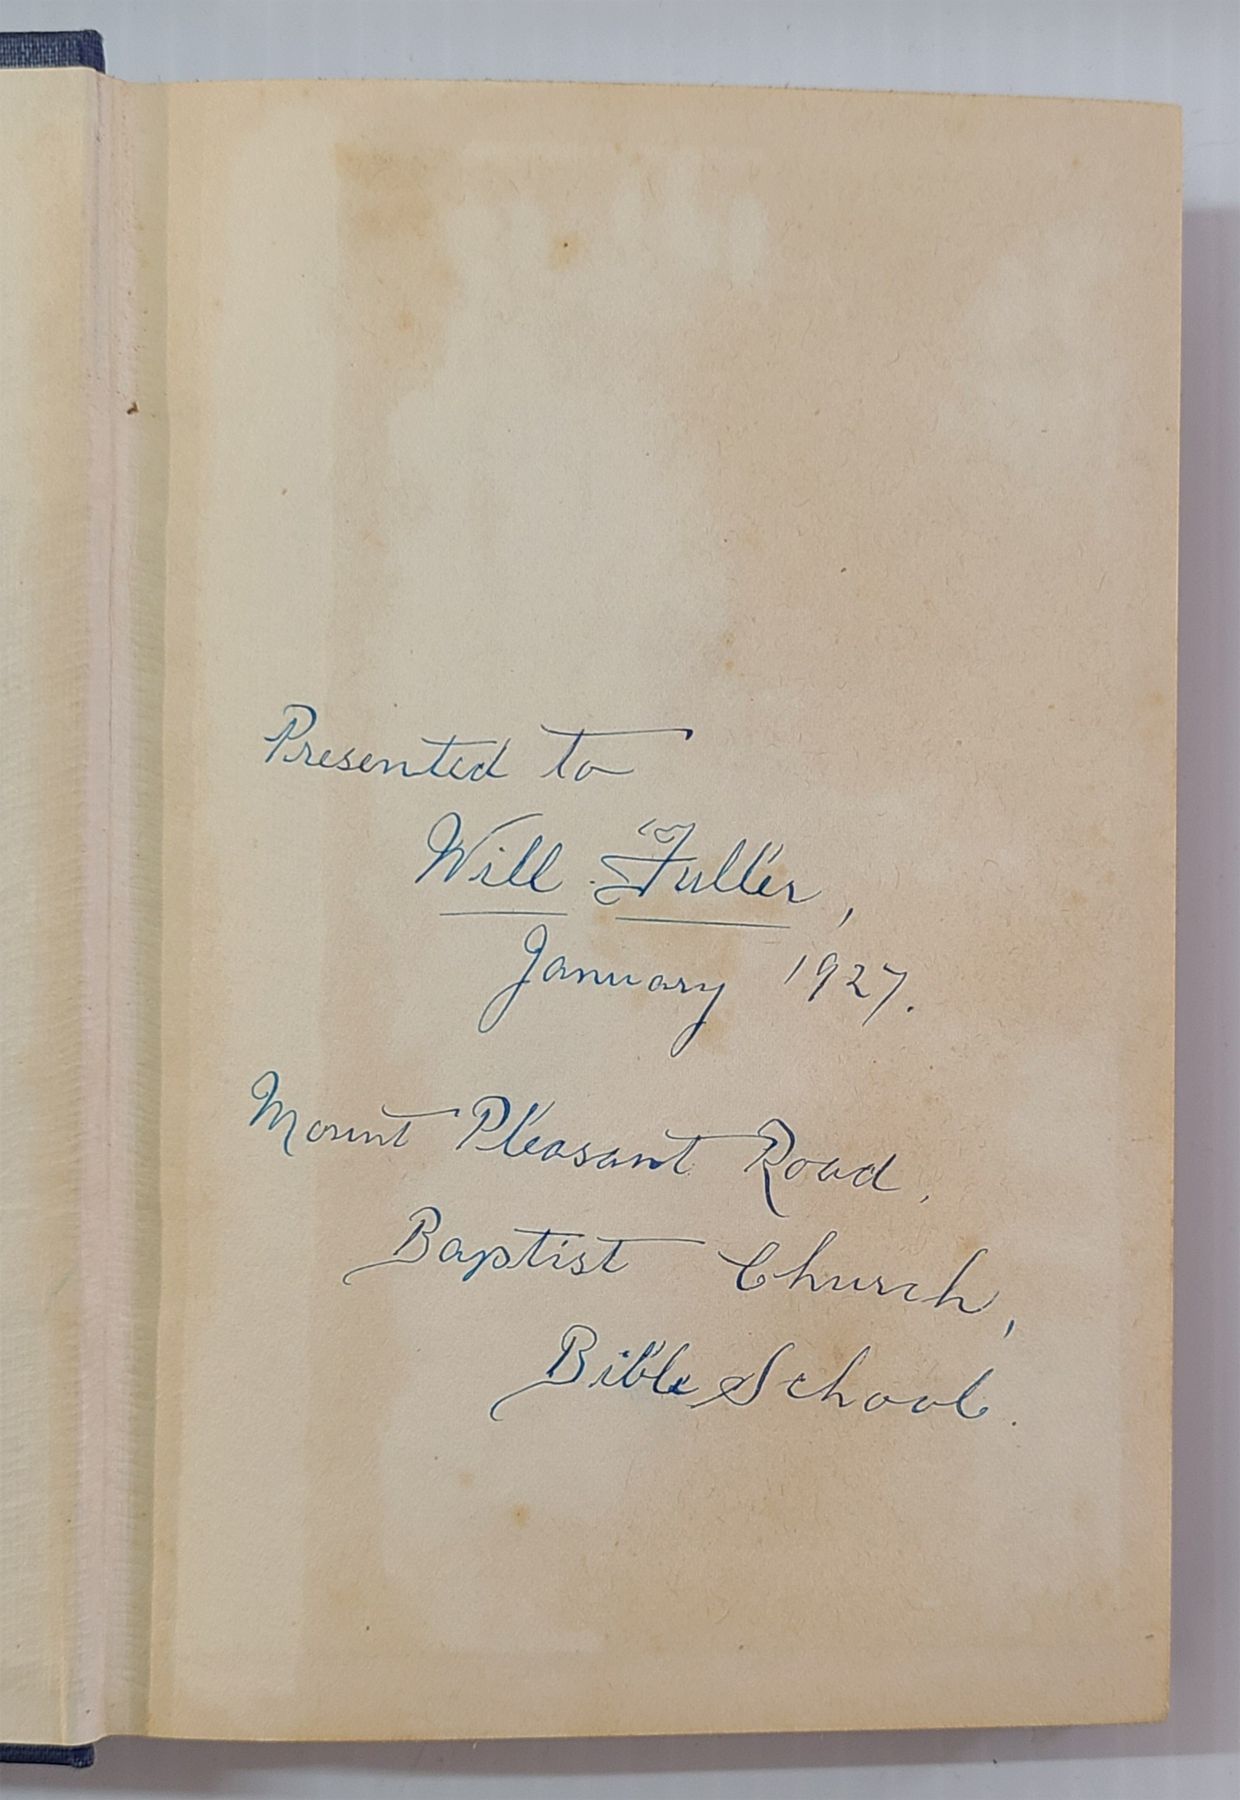 Presented to
Will Fuller,
January 1927.
Mount Pleasant Road,
Baptist Church,
Bible School.